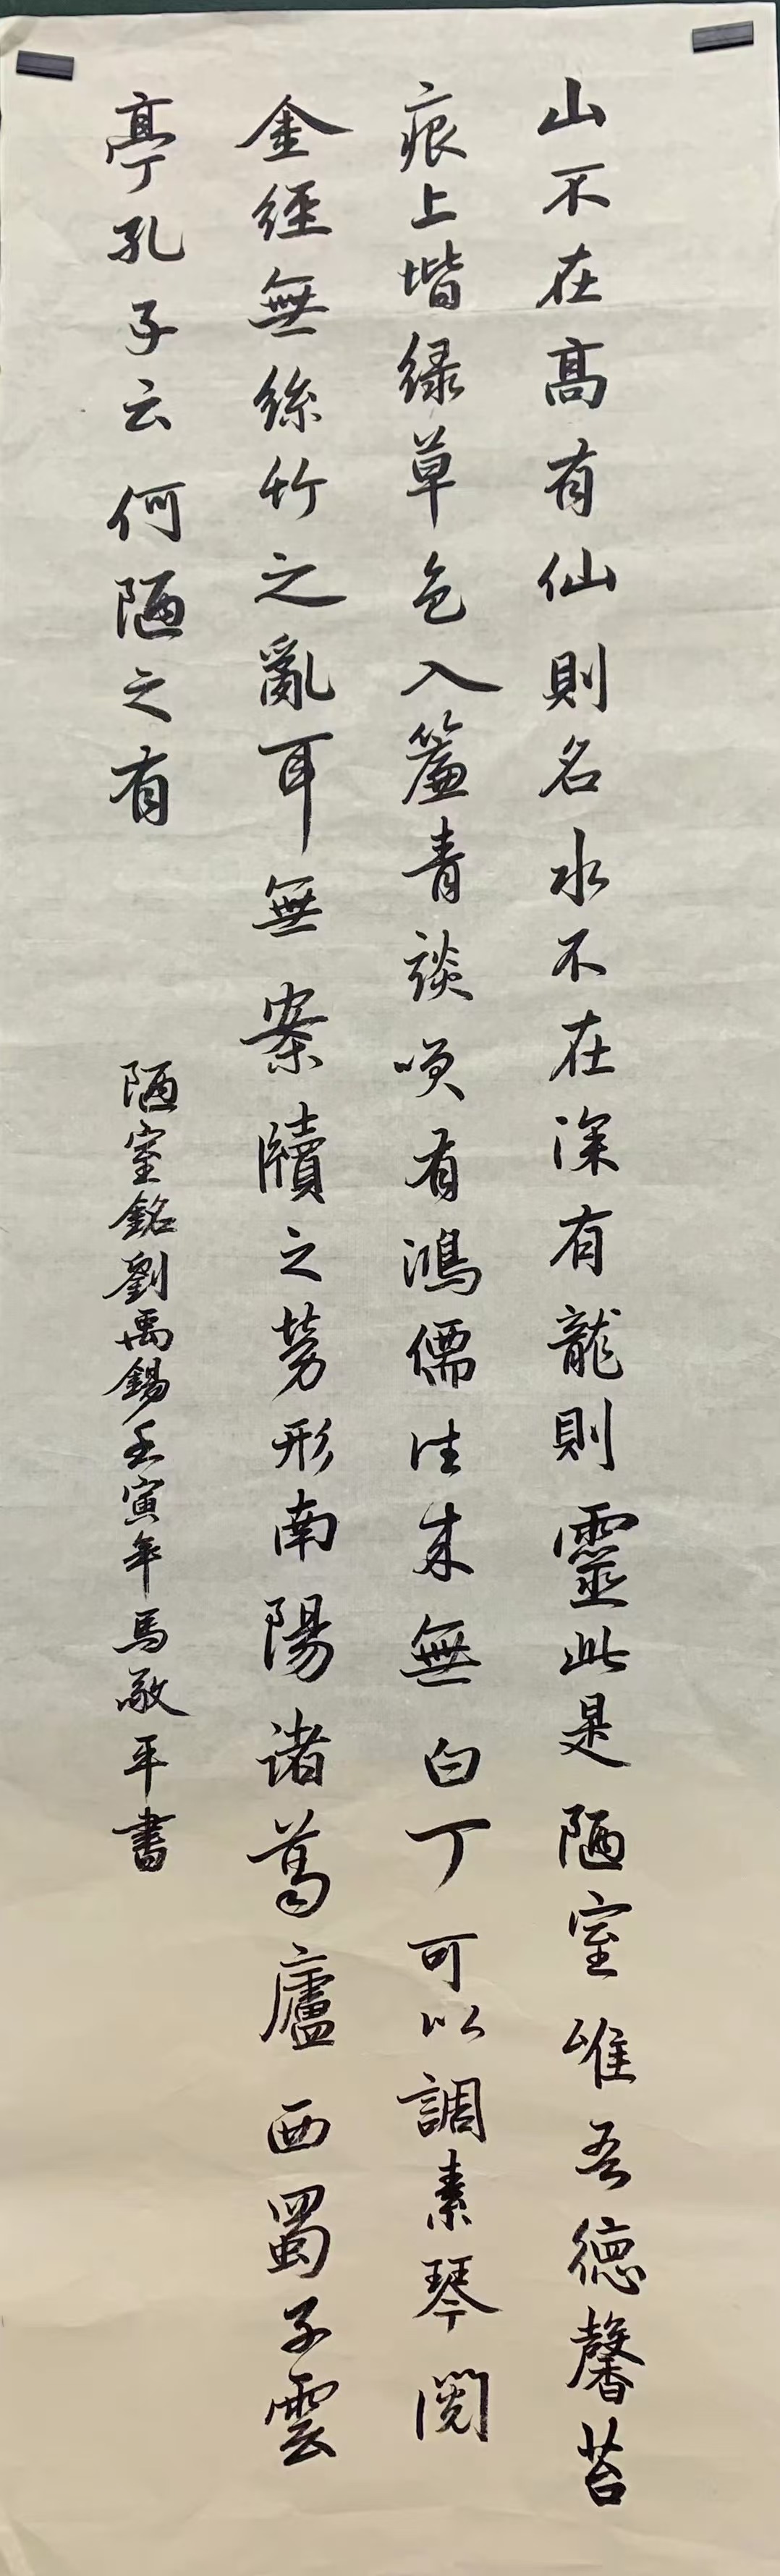 山不在高有仙則名水不在深有龍則靈此是陋室唯吾德馨苔
痕上堦緑草色入簾青談唤有鴻儒往来無白丁可以調素琴閲
金經無絲竹之亂耳無案牘之勞形南陽諸葛廬西蜀子雲
亭孔子云何陋之有
陋室銘劉禹錫壬寅年馬敬平書